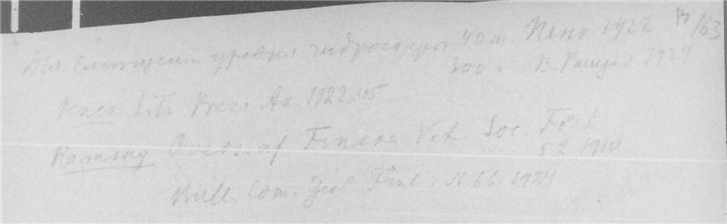 Для уровня гидросферы 40 m Пенк 1922 14/63
300. В. Рамзай 1924
Penck Sitz Preus. Ak 1922 305
Ramsay Overs. af Finska Vet Soc Förh
52 1910
Bull. Com. Geol Finl. N 66. 1924